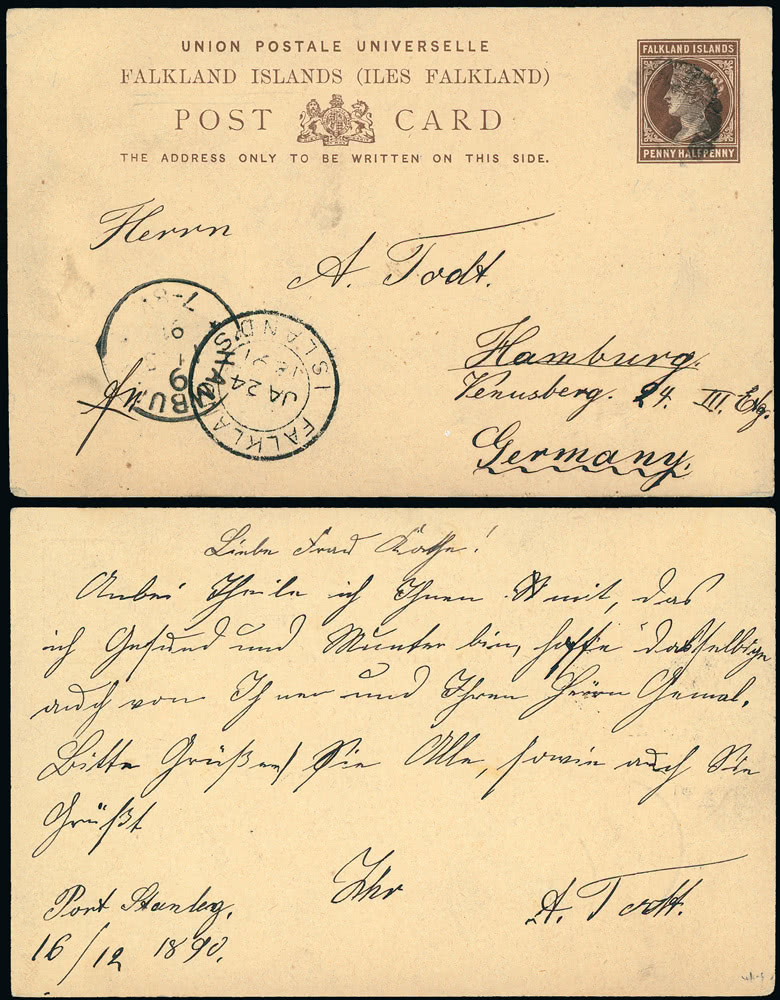 UNION POSTALE UNIVERSELLE
FALKLAND ISLANDS (ILES FALKLAND)
POST CARD
THE ADDRESS ONLY TO BE WRITTEN ON THIS SIDE.
FALKLAND ISLANDS
PENNY HALFPENNY
Herrn
A. Todt.
Hamburg.
Venusberg. 24. III. Etg.
Germany.
FALKLAND ISLANDS
JA 24
91
HAMBURG
9
91
7-8
Liebe Frau Käthe!
Anbei Theile ich Ihnen mit, das
ich Gesund und Munter bin, hoffe dasselbige
auch von Ihnen und Ihren Herrn Gemal.
Bitte Grüßen Sie Alle, sowie auch Sie
Grüßt
Ihr
A. Todt.
Port Stanley,
16/12 1890.